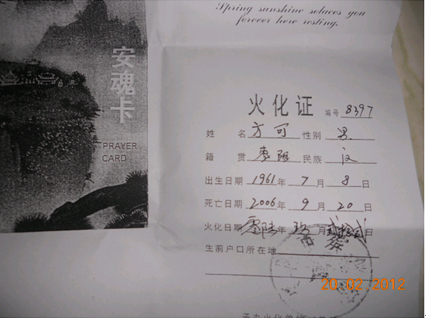 Spring sunshine solaces you
forever here resting.
安魂卡
PRAYER
CARD
火化证 编号 8397
姓名 方可 性别 男
籍贯 民族 汉
出生日期 1961年 7月 8日
死亡日期 2006年 9月 20日
火化日期 年 月 日
生前户口所在地
20 02 2012